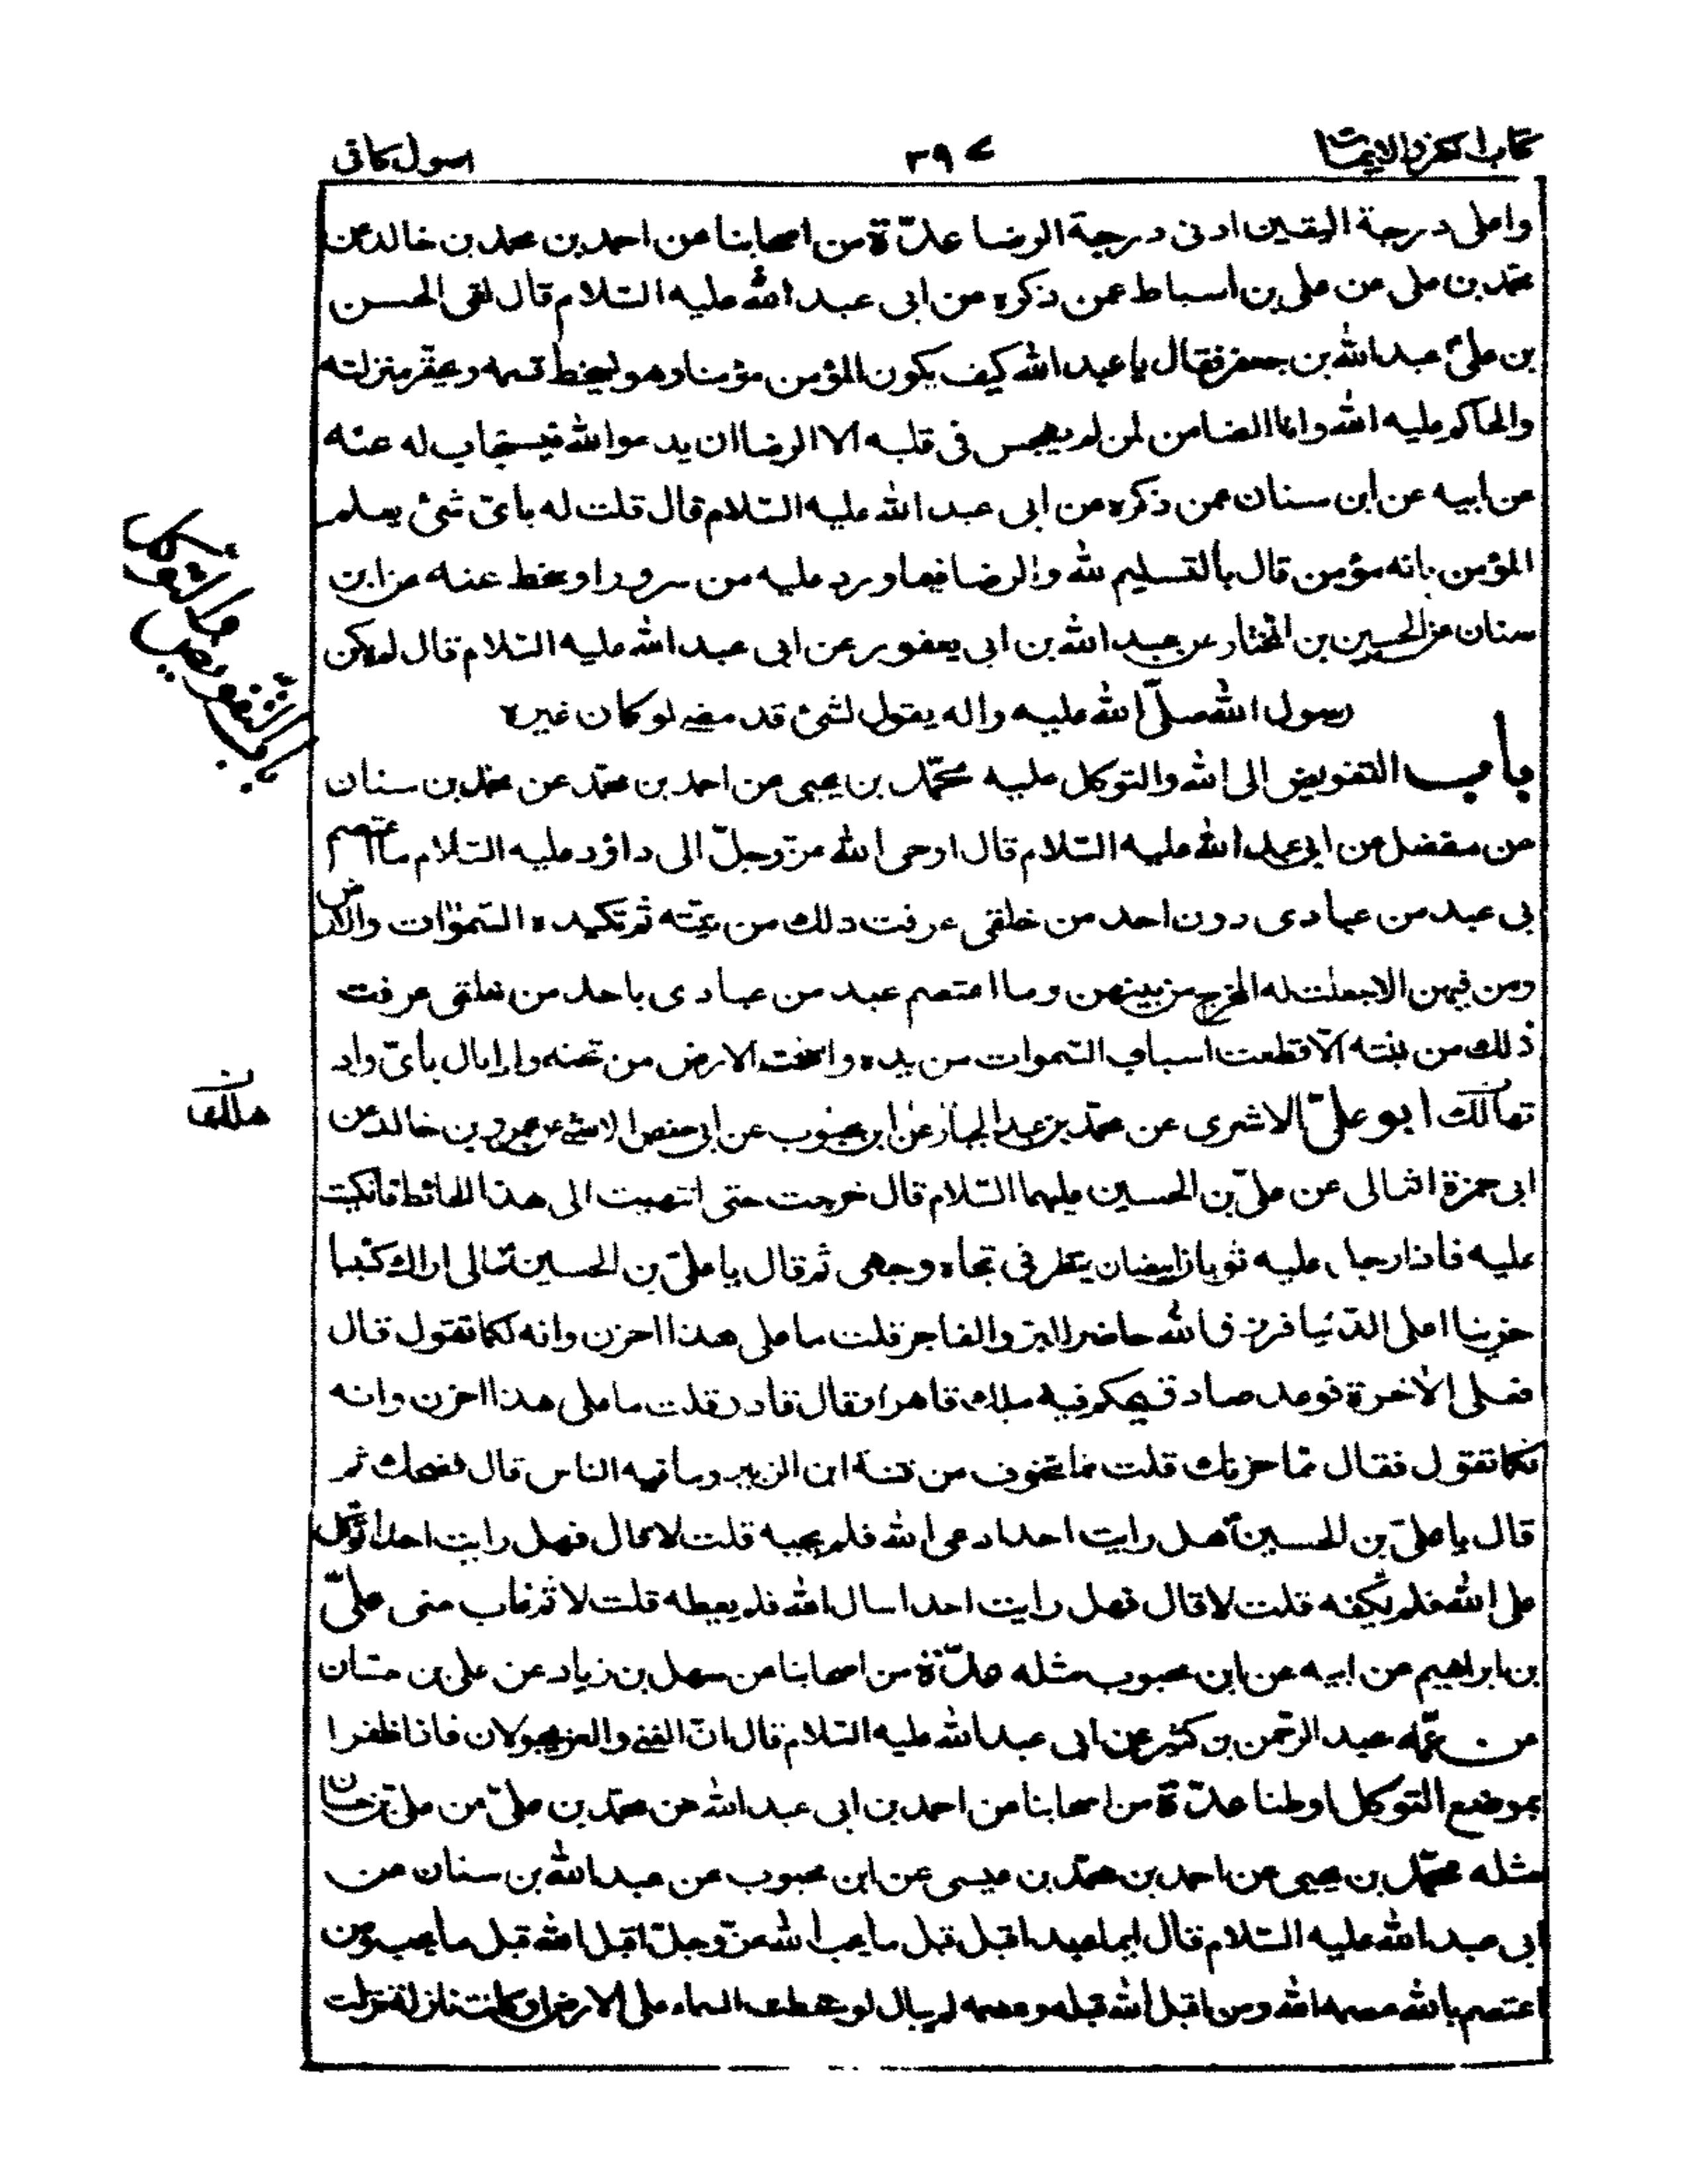 كتاب الكفر والايمان ٣٩٧ اصول كافى
واعلى درجة اليقين ادنى درجة الرضا عدّة من اصحابنا عن احمد بن محمد بن خالد عن
محمّد بن على عن على بن اسباط عمن ذكره عن ابى عبد الله عليه السّلام قال لقى الحسن
بن علىّ عبد الله بن جعفر فقال يا عبد الله كيف يكون المؤمن مؤمنا وهو يسخط قسمه ويحقّر منزلته
والحاكم عليه الله وانا الضامن لمن لم يهجس فى قلبه الا الرضا ان يدعوا الله فيستجاب له عنه
عن ابيه عن ابن سنان عمن ذكره عن ابى عبد الله عليه السّلام قال قلت له باىّ شئ يعلم
المؤمن بانه مؤمن قال بالتسليم لله والرضا فيما ورد عليه من سرور او سخط عنه عن ابن
سنان عن الحسين بن المختار عن عبد الله بن ابى يعفور عن ابى عبد الله عليه السّلام قال لم يكن
رسول الله صلّى الله عليه واله يقول لشئ قد مضى لو كان غيره
باب التفويض الى الله والتوكل عليه محمّد بن يحيى عن احمد بن محمّد عن محمّد بن سنان
عن مفضل عن ابى عبد الله عليه السّلام قال اوحى الله عزّ وجلّ الى داؤد عليه السّلام ما اعتصم
بى عبد من عبادى دون احد من خلقى عرفت ذلك من نيّته ثم تكيده السّموات والارض
ومن فيهن الا جعلت له المخرج من بينهن وما اعتصم عبد من عبادى باحد من خلقى عرفت
ذلك من نيّته الّا قطعت اسباب السّموات من يده واسخت الارض من تحته ولم ابال باىّ واد
تهالك ابو علىّ الاشعرى عن محمّد بن عبد الجبّار عن ابن محبوب عن ابى حفص الاعشى عن عمرو بن خالد عن
ابى حمزة الثمالى عن علىّ بن الحسين عليهما السّلام قال خرجت حتى انتهيت الى هذا الحائط فاتكيت
عليه فاذا رجل عليه ثوبان ابيضان ينظر فى تجاه وجهى ثم قال يا علىّ بن الحسين مالى اراك كئيبا
حزينا اعلى الدّنيا فرزق الله حاضر للبرّ والفاجر قلت ما على هذا احزن وانه لكما تقول قال
فعلى الاخرة فوعد صادق يحكم فيه ملك قاهر او قال قادر قلت ما على هذا احزن وانه
لكما تقول فقال ممّا حزنك قلت مما نتخوف من فتنة ابن الزبير وما فيه الناس قال فضحك ثم
قال يا علىّ بن الحسين هل رايت احدا دعى الله فلم يجبه قلت لا قال فهل رايت احدا توكّل
على الله فلم يكفه قلت لا قال فهل رايت احدا سال الله فلم يعطه قلت لا ثم غاب عنى علىّ
بن ابراهيم عن ابيه عن ابن محبوب مثله عدّة من اصحابنا عن سهل بن زياد عن على بن حسّان
عن عمّه عبد الرّحمن بن كثير عن ابى عبد الله عليه السّلام قال انّ الغنى والعز يجولان فاذا ظفرا
بموضع التوكل اوطنا عدّة من اصحابنا عن احمد بن ابى عبد الله عن محمّد بن علىّ عن علىّ بن حسان
مثله محمّد بن يحيى عن احمد بن محمّد بن عيسى عن ابن محبوب عن عبد الله بن سنان عن
ابى عبد الله عليه السّلام قال ايما عبد اقبل قبل ما يحب الله عزّ وجلّ اقبل الله قبل ما يحب ومن
اعتصم بالله عصمه الله ومن اقبل الله قبله وعصمه لم يبال لو سقطت السماء على الارض او كانت نازلة نزلت
باب التفويض والتوكل
هلك ن